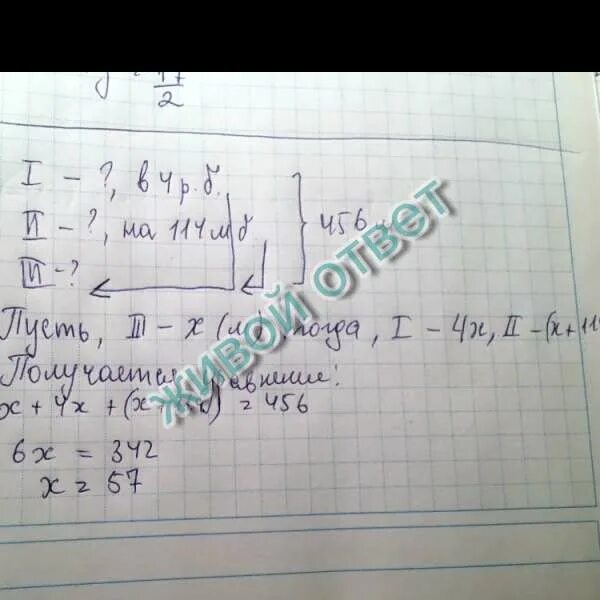 17
2
I – ?, в 4 р. б.
II – ?, на 114 м б
III – ?
456
Пусть, III – x (м), тогда, I – 4x, II – (x + 11
Получается уравнение:
x + 4x + (x + 114) = 456
6x = 342
x = 57
ЖИВОЙ ОТВЕТ